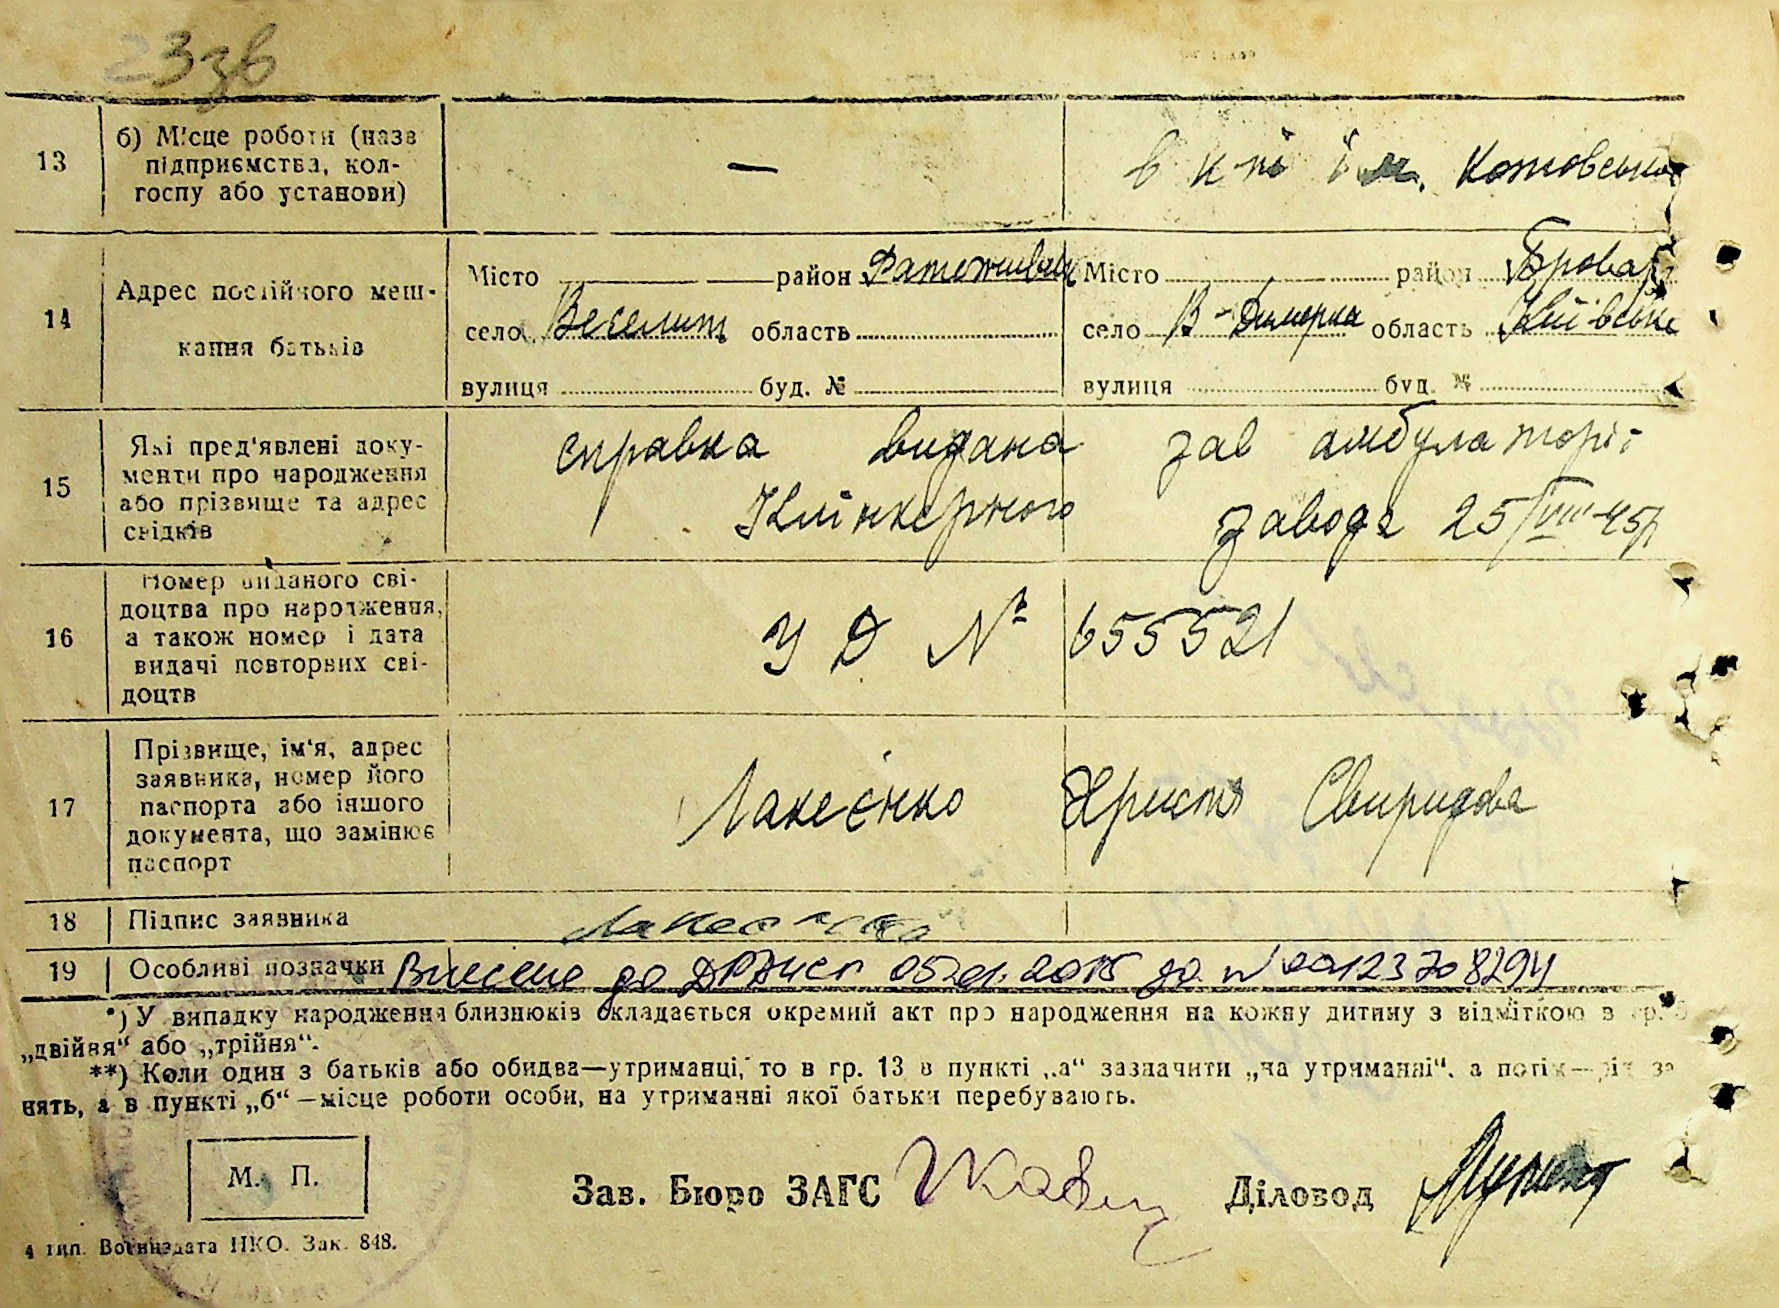 33зв
13 б) Місце роботи (назв — в к-пі ім. Котовськ
підприємства, кол-
госпу або установи)
14 Адрес постійного меш-
кання батьків
Місто район Місто район Бровар
село Веселит область село В-Димерка область Київськ
вулиця буд. № вулиця буд. №
15 Які пред'явлені доку-
менти про народження
або прізвище та адрес
свідків
справка видана зав амбулаторії
Клінкерного завода 25/VIII-45р
16 Номер виданого сві-
доцтва про народження,
а також номер і дата
видачі повторних сві-
доцтв
УД № 655521
17 Прізвище, ім'я, адрес
заявника, номер його
паспорта або іншого
документа, що замінює
паспорт
Лакеєнко Христя Свиридова
18 Підпис заявника Лакеєнко
19 Особливі позначки Внесено до ДРАЦСГ 05.01.2015 за № 00123708294
*) У випадку народження близнюків складається окремий акт про народження на кожну дитину з відміткою в гр.
„двійня“ або „трійня“.
**) Коли один з батьків або обидва—утриманці, то в гр. 13 в пункті „а“ зазначити „на утриманні“, а потім—рід за
нять, а в пункті „б“—місце роботи особи, на утриманні якої батьки перебувають.
М. П.
Зав. Бюро ЗАГС Діловод
4 тип. Воениздата НКО. Зак. 848.